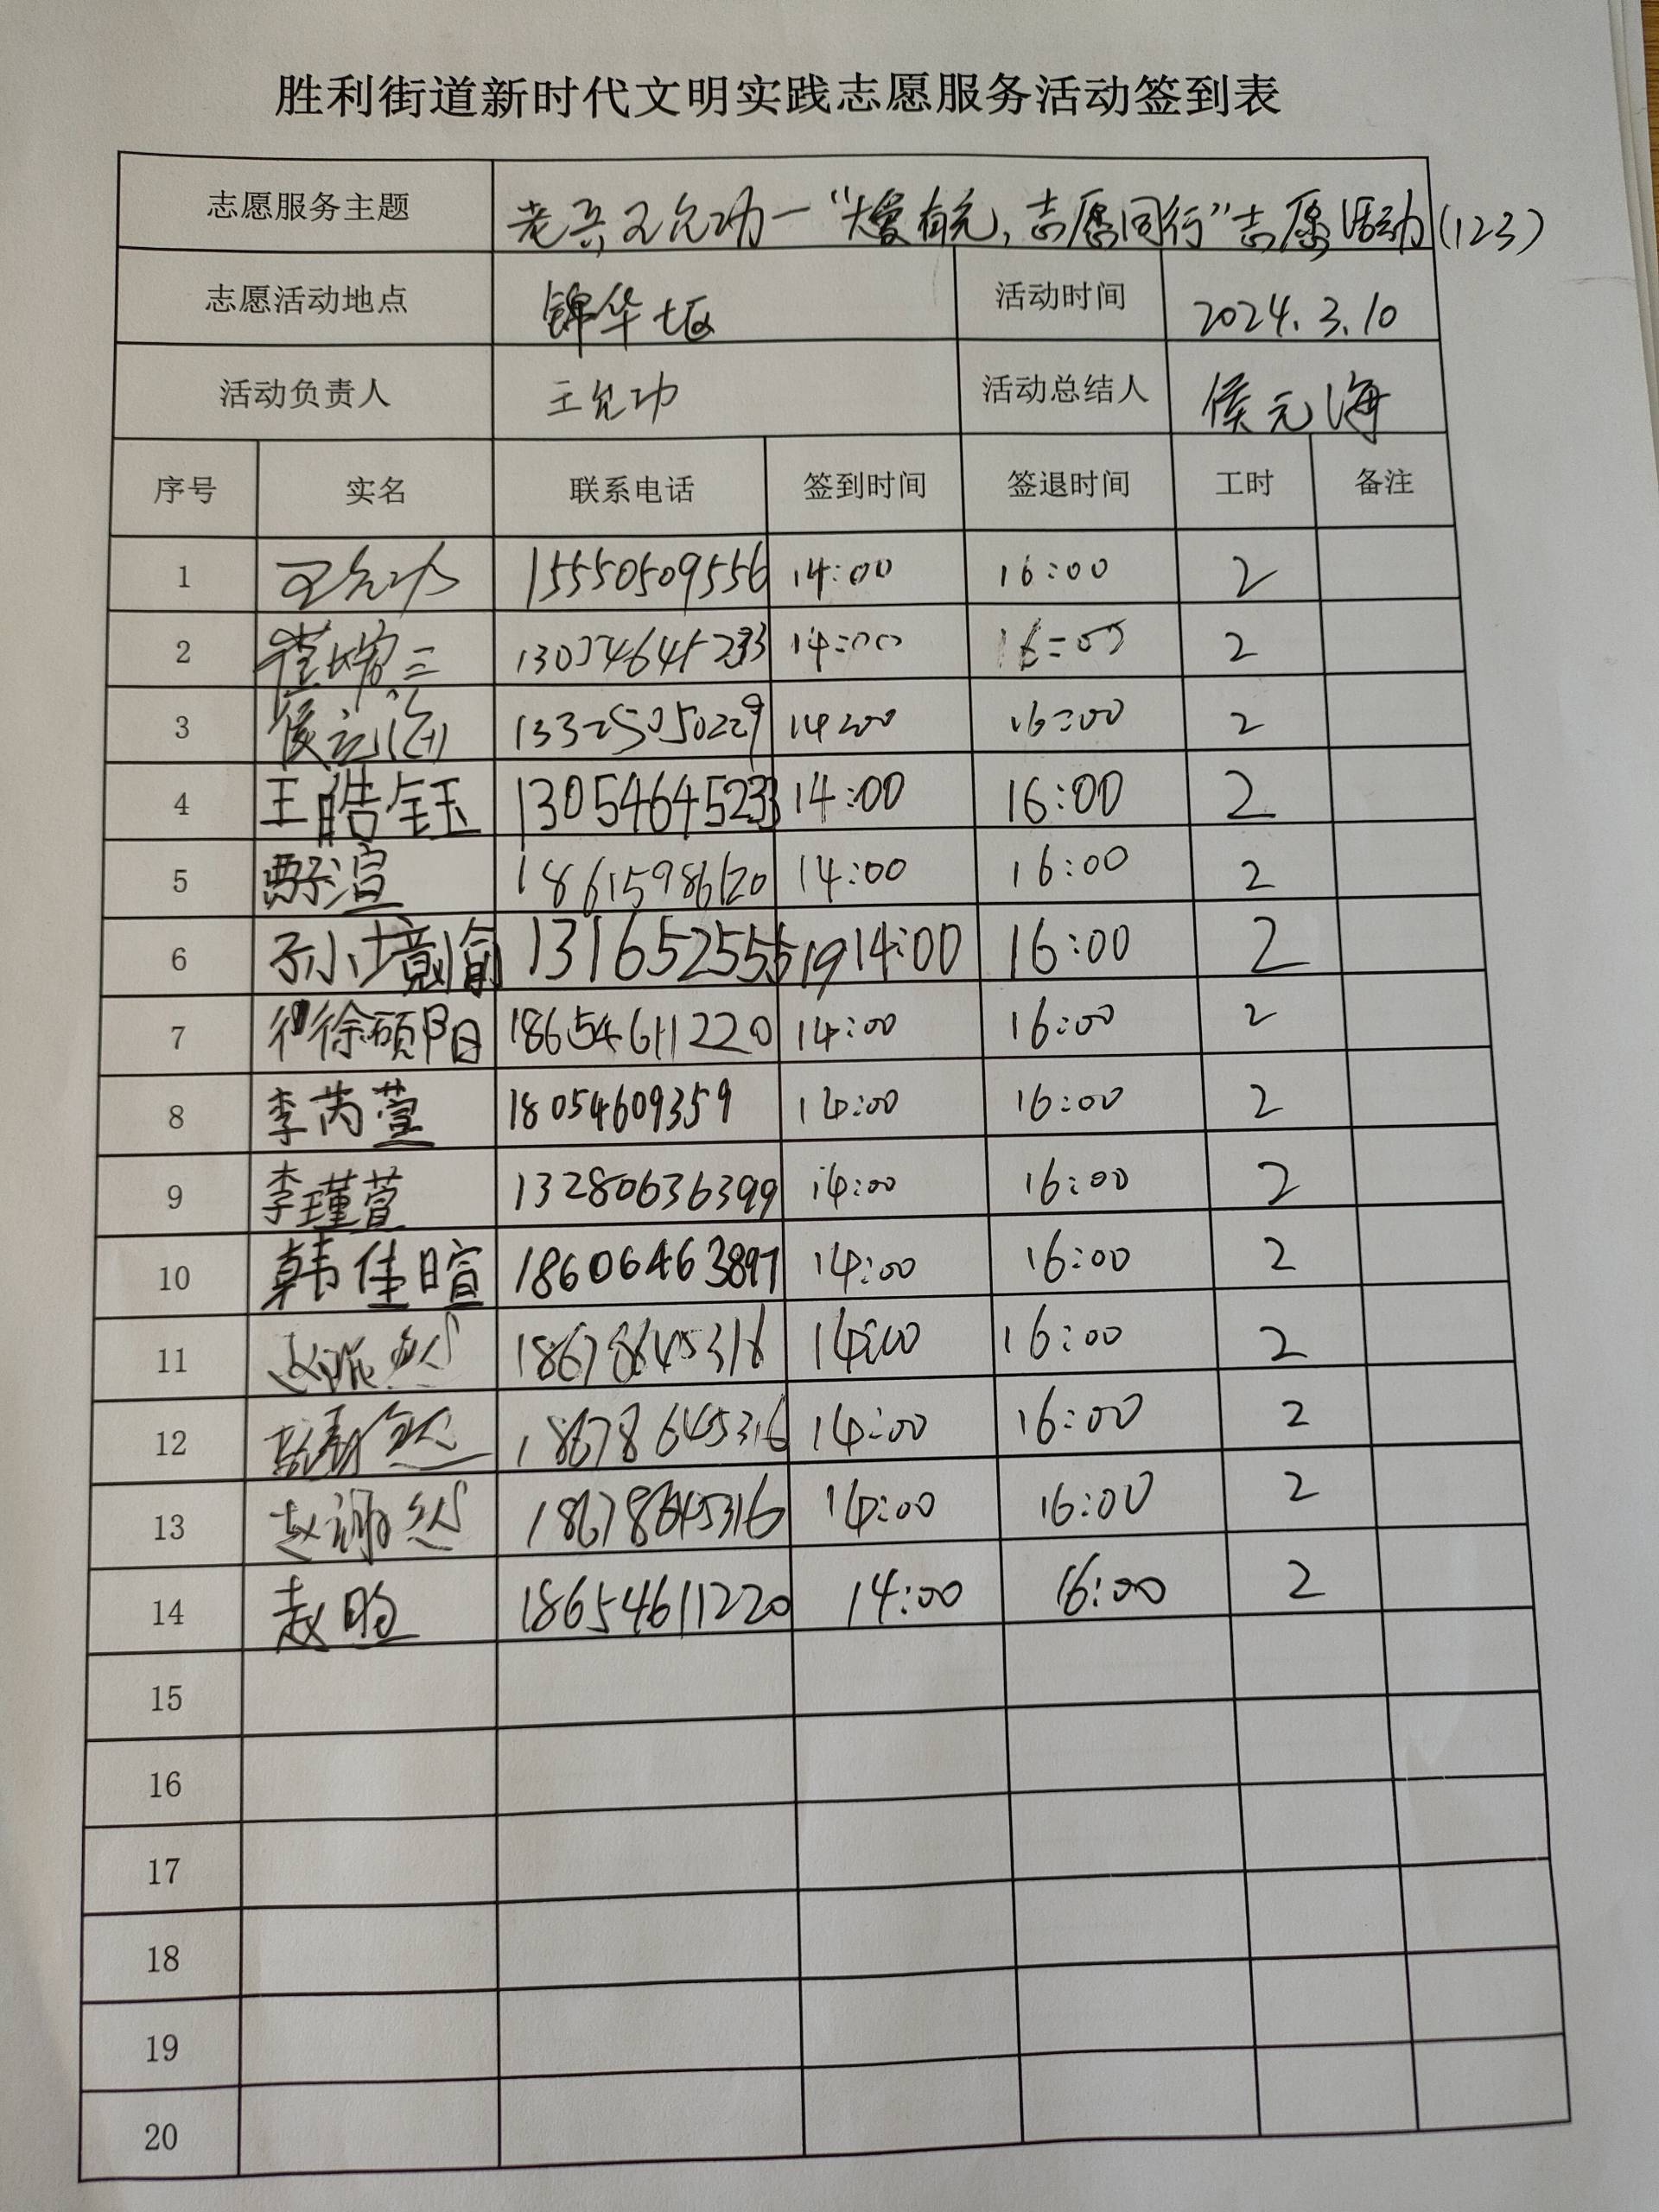 胜利街道新时代文明实践志愿服务活动签到表
志愿服务主题 老兵王允功一“大爱有光,志愿同行”志愿活动(123)
志愿活动地点 锦华 活动时间 2024.3.10
活动负责人 王允功 活动总结人 侯元海
序号 实名 联系电话 签到时间 签退时间 工时 备注
1 王允功 15550509556 14:00 16:00 2
2 14:00 16:00 2
3 侯元海 13325050229 14:00 16:00 2
4 王皓钰 13054645233 14:00 16:00 2
5 18615986120 14:00 16:00 2
6 孙小境愉 13165255519 14:00 16:00 2
7 徐硕阳 18654611220 14:00 16:00 2
8 李芮萱 18054609359 14:00 16:00 2
9 李瑾萱 13280636399 14:00 16:00 2
10 韩佳暄 18606463897 14:00 16:00 2
11 14:00 16:00 2
12 18678645316 14:00 16:00 2
13 18678645316 14:00 16:00 2
14 18654611220 14:00 16:00 2
15
16
17
18
19
20